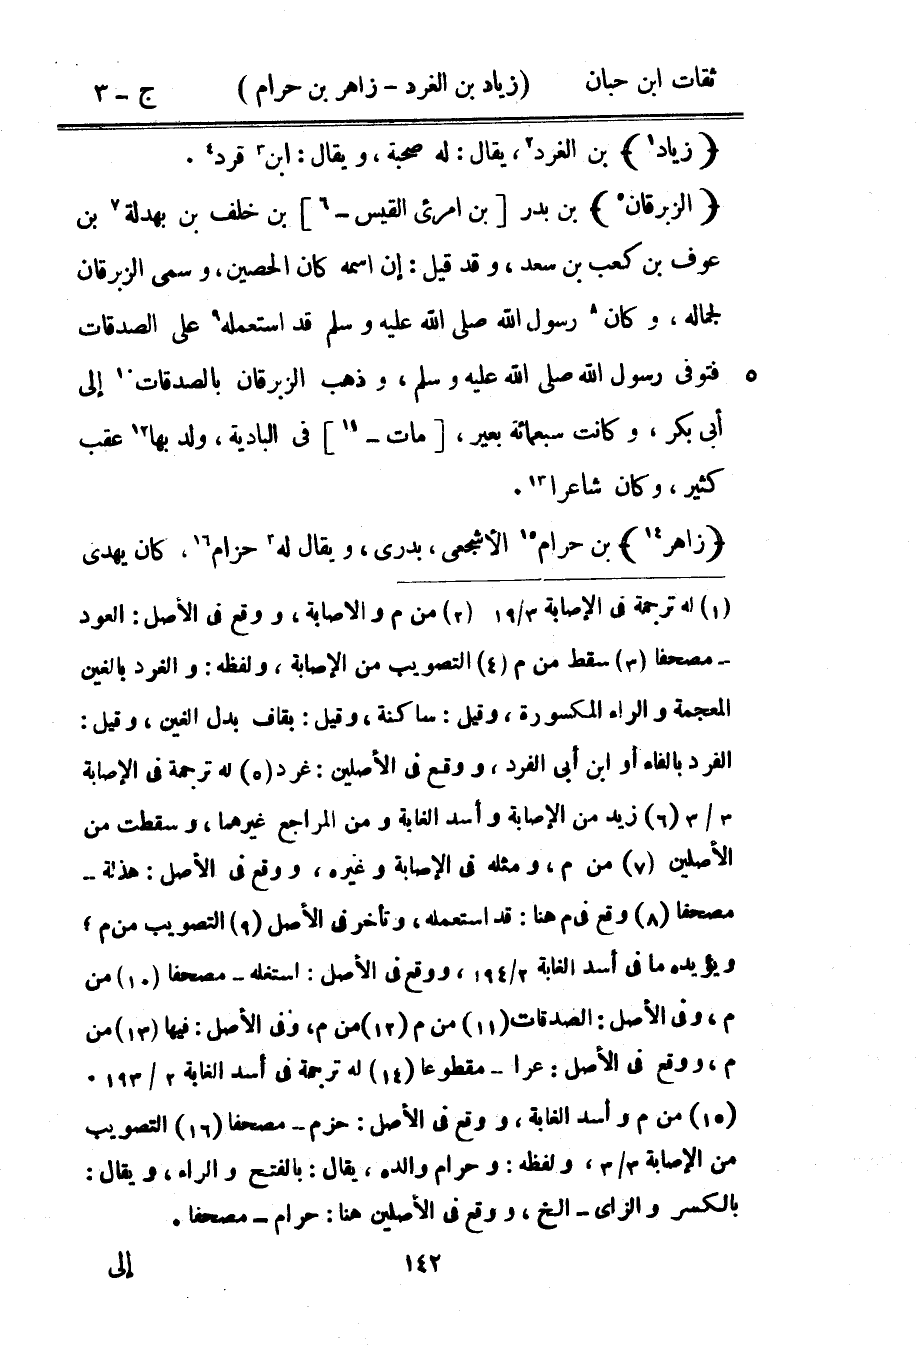 ثقات ابن حبان (زياد بن الغرد – زاهر بن حرام) ج – ٣
﴿ زياد١ ﴾ بن الغرد٢ ، يقال : له صحبة ، و يقال : ابن٣ قرد٤ .
﴿ الزبرقان٥ ﴾ بن بدر [ بن امرئ القيس – ٦ ] بن خلف بن بهدلة٧ بن
عوف بن كعب بن سعد ، و قد قيل : إن اسمه كان الحصين ، و سمى الزبرقان
لجماله ، و كان٨ رسول الله صلى الله عليه و سلم قد استعمله٩ على الصدقات
فتوفى رسول الله صلى الله عليه و سلم ، و ذهب الزبرقان بالصدقات١٠ إلى ٥
أبى بكر ، و كانت سبعمائة بعير ، [ مات – ١١ ] فى البادية ، ولد بها١٢ عقب
كثير ، و كان شاعرا١٣ .
﴿ زاهر١٤ ﴾ بن حرام١٥ الأشجعى ، بدرى ، و يقال له٣ حزام١٦ ، كان يهدى
(١) له ترجمة فى الإصابة ١٩/٣ (٢) من م و الاصابة ، و وقع فى الأصل : العود
– مصحفا (٣) سقط من م (٤) التصويب من الإصابة ، و لفظه : و الغرد بالغين
المعجمة و الراء المكسورة ، و قيل : ساكنة ، و قيل : بقاف بدل الغين ، و قيل :
الفرد بالفاء أو ابن أبى الفرد ، و وقع فى الأصلين : غرد (٥) له ترجمة فى الإصابة
٣ / ٣ (٦) زيد من الإصابة و أسد الغابة و من المراجع غيرهما ، و سقطت من
الأصلين (٧) من م ، و مثله فى الإصابة و غيره ، و وقع فى الأصل : هذلة –
مصحفا (٨) وقع فى م هنا : قد استعمله ، و تأخر فى الأصل (٩) التصويب من م ؛
و يؤيده ما فى أسد الغابة ١٩٤/٢ ، و وقع فى الأصل : استغله – مصحفا (١٠) من
م ، و فى الأصل : الصدقات (١١) من م (١٢) من م ، و فى الأصل : فيها (١٣) من
م ، و وقع فى الأصل : عرا – مقطوعا (١٤) له ترجمة فى أسد الغابة ٢ / ١٩٣ .
(١٥) من م و أسد الغابة ، و وقع فى الأصل : حزم – مصحفا (١٦) التصويب
من الإصابة ٣/٣ ، و لفظه : و حرام والده ، يقال : بالفتح و الراء ، و يقال :
بالكسر و الزاى – الخ ، و وقع فى الأصلين هنا : حرام – مصحفا .
١٤٢ إلى